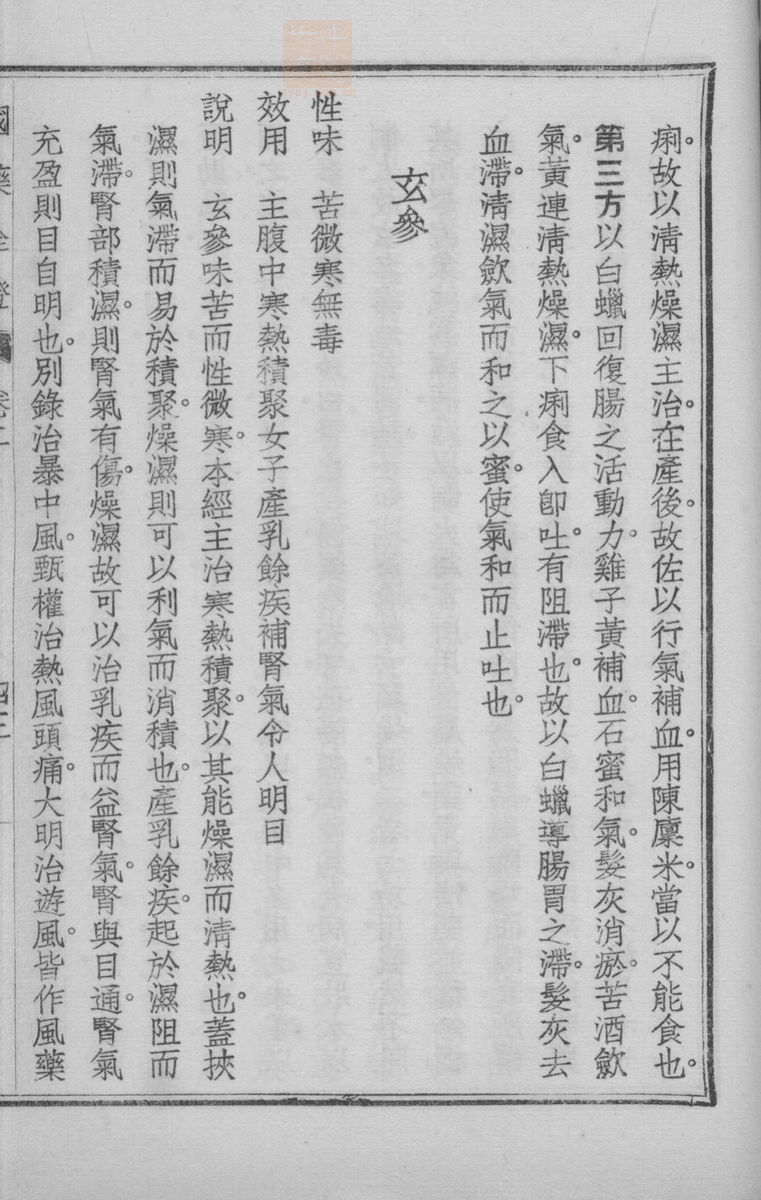 痢。故以清熱燥濕主治。在產後。故佐以行氣補血。用陳廩米。當以不能食也。
第三方以白蠟回復腸之活動力。雞子黃補血。石蜜和氣。髮灰消瘀。苦酒歛
氣。黃連清熱燥濕。下痢食入卽吐。有阻滯也。故以白蠟導腸胃之滯。髮灰去
血滯。清濕歛氣而和之以蜜。使氣和而止吐也。
玄參
性味　苦微寒無毒
效用　主腹中寒熱積聚女子產乳餘疾補腎氣令人明目
說明　玄參味苦而性微寒。本經主治寒熱積聚。以其能燥濕而清熱也。蓋挾
濕則氣滯而易於積聚。燥濕則可以利氣而消積也。產乳餘疾。起於濕阻而
氣滯。腎部積濕。則腎氣有傷。燥濕故可以治乳疾而益腎氣。腎與目通。腎氣
充盈則目自明也。別錄治暴中風。甄權治熱風頭痛。大明治遊風。皆作風藥
國藥詮證 卷二
四二